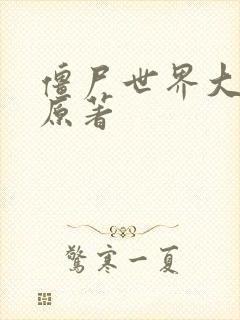 僵尸世界大
原著
驚寒一夏